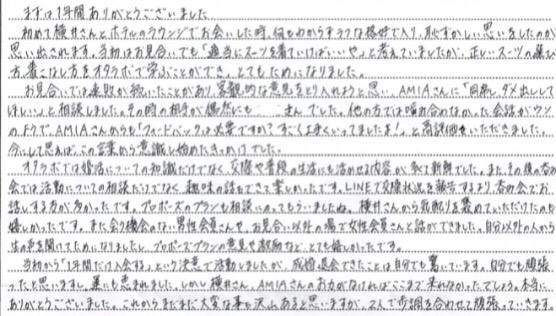 まずは1年間ありがとうございました
初めて横井さんとホテルのラウンジでお会いした時、何もわからずラフな格好で入り、恥ずかしい思いをしたのが
思い出されます。当初はお見合いでも「適当にスーツを着ていけばいいや。」と考えていましたが、正しいスーツの選び
方、着こなし方をオタラボで学ぶことができ、とてもためになりました。
お見合いでは連敗が続いたことがあり、客観的な意見をとり入れようと思い、AMIAさんに「同席し、ダメ出しして
ほしい」と相談しました。その時の相手が偶然にも さんでした。他の方では噛み合わなかった会話がウソ
のようで、AMIAさんからも「フィードバックは必要ですか?すごく上手くいってましたよ!」と高評価をいただきました。
今にして思えば、この言葉から意識し始めたきっかけでした。
オタラボでは婚活についての知識だけでなく、交際や普段の生活にも活かせる内容が多くて新鮮でした。また、その後の呑み
会では活動についての相談だけでなく趣味の話もできて楽しかったです。LINEで交際状況を報告するより、呑み会でお
話しする方が多かったです。プロポーズのプランも相談にのってもらいましたね。横井さんから気配りを褒めていただけたのも
嬉しかったです。また会う機会のない男性会員さんや、お見合い以外の場で女性会員さんと話ができました。自分以外の人から
生の声を聞けてためになりましたし、プロポーズプランの意見や激励など、とても嬉しかったです。
当初から「1年間だけ入会する」という決意で活動しましたが、成婚退会できたことは自分でも驚いています。自分でも頑張
ったと思いますし、運にも恵まれました。しかし横井さん、AMIAさんのお力がなければここまで来れなかったでしょう。本当に
ありがとうございました。これからまだまだ大変な事も沢山あると思いますが、2人で歩調を合わせて頑張っていきます。